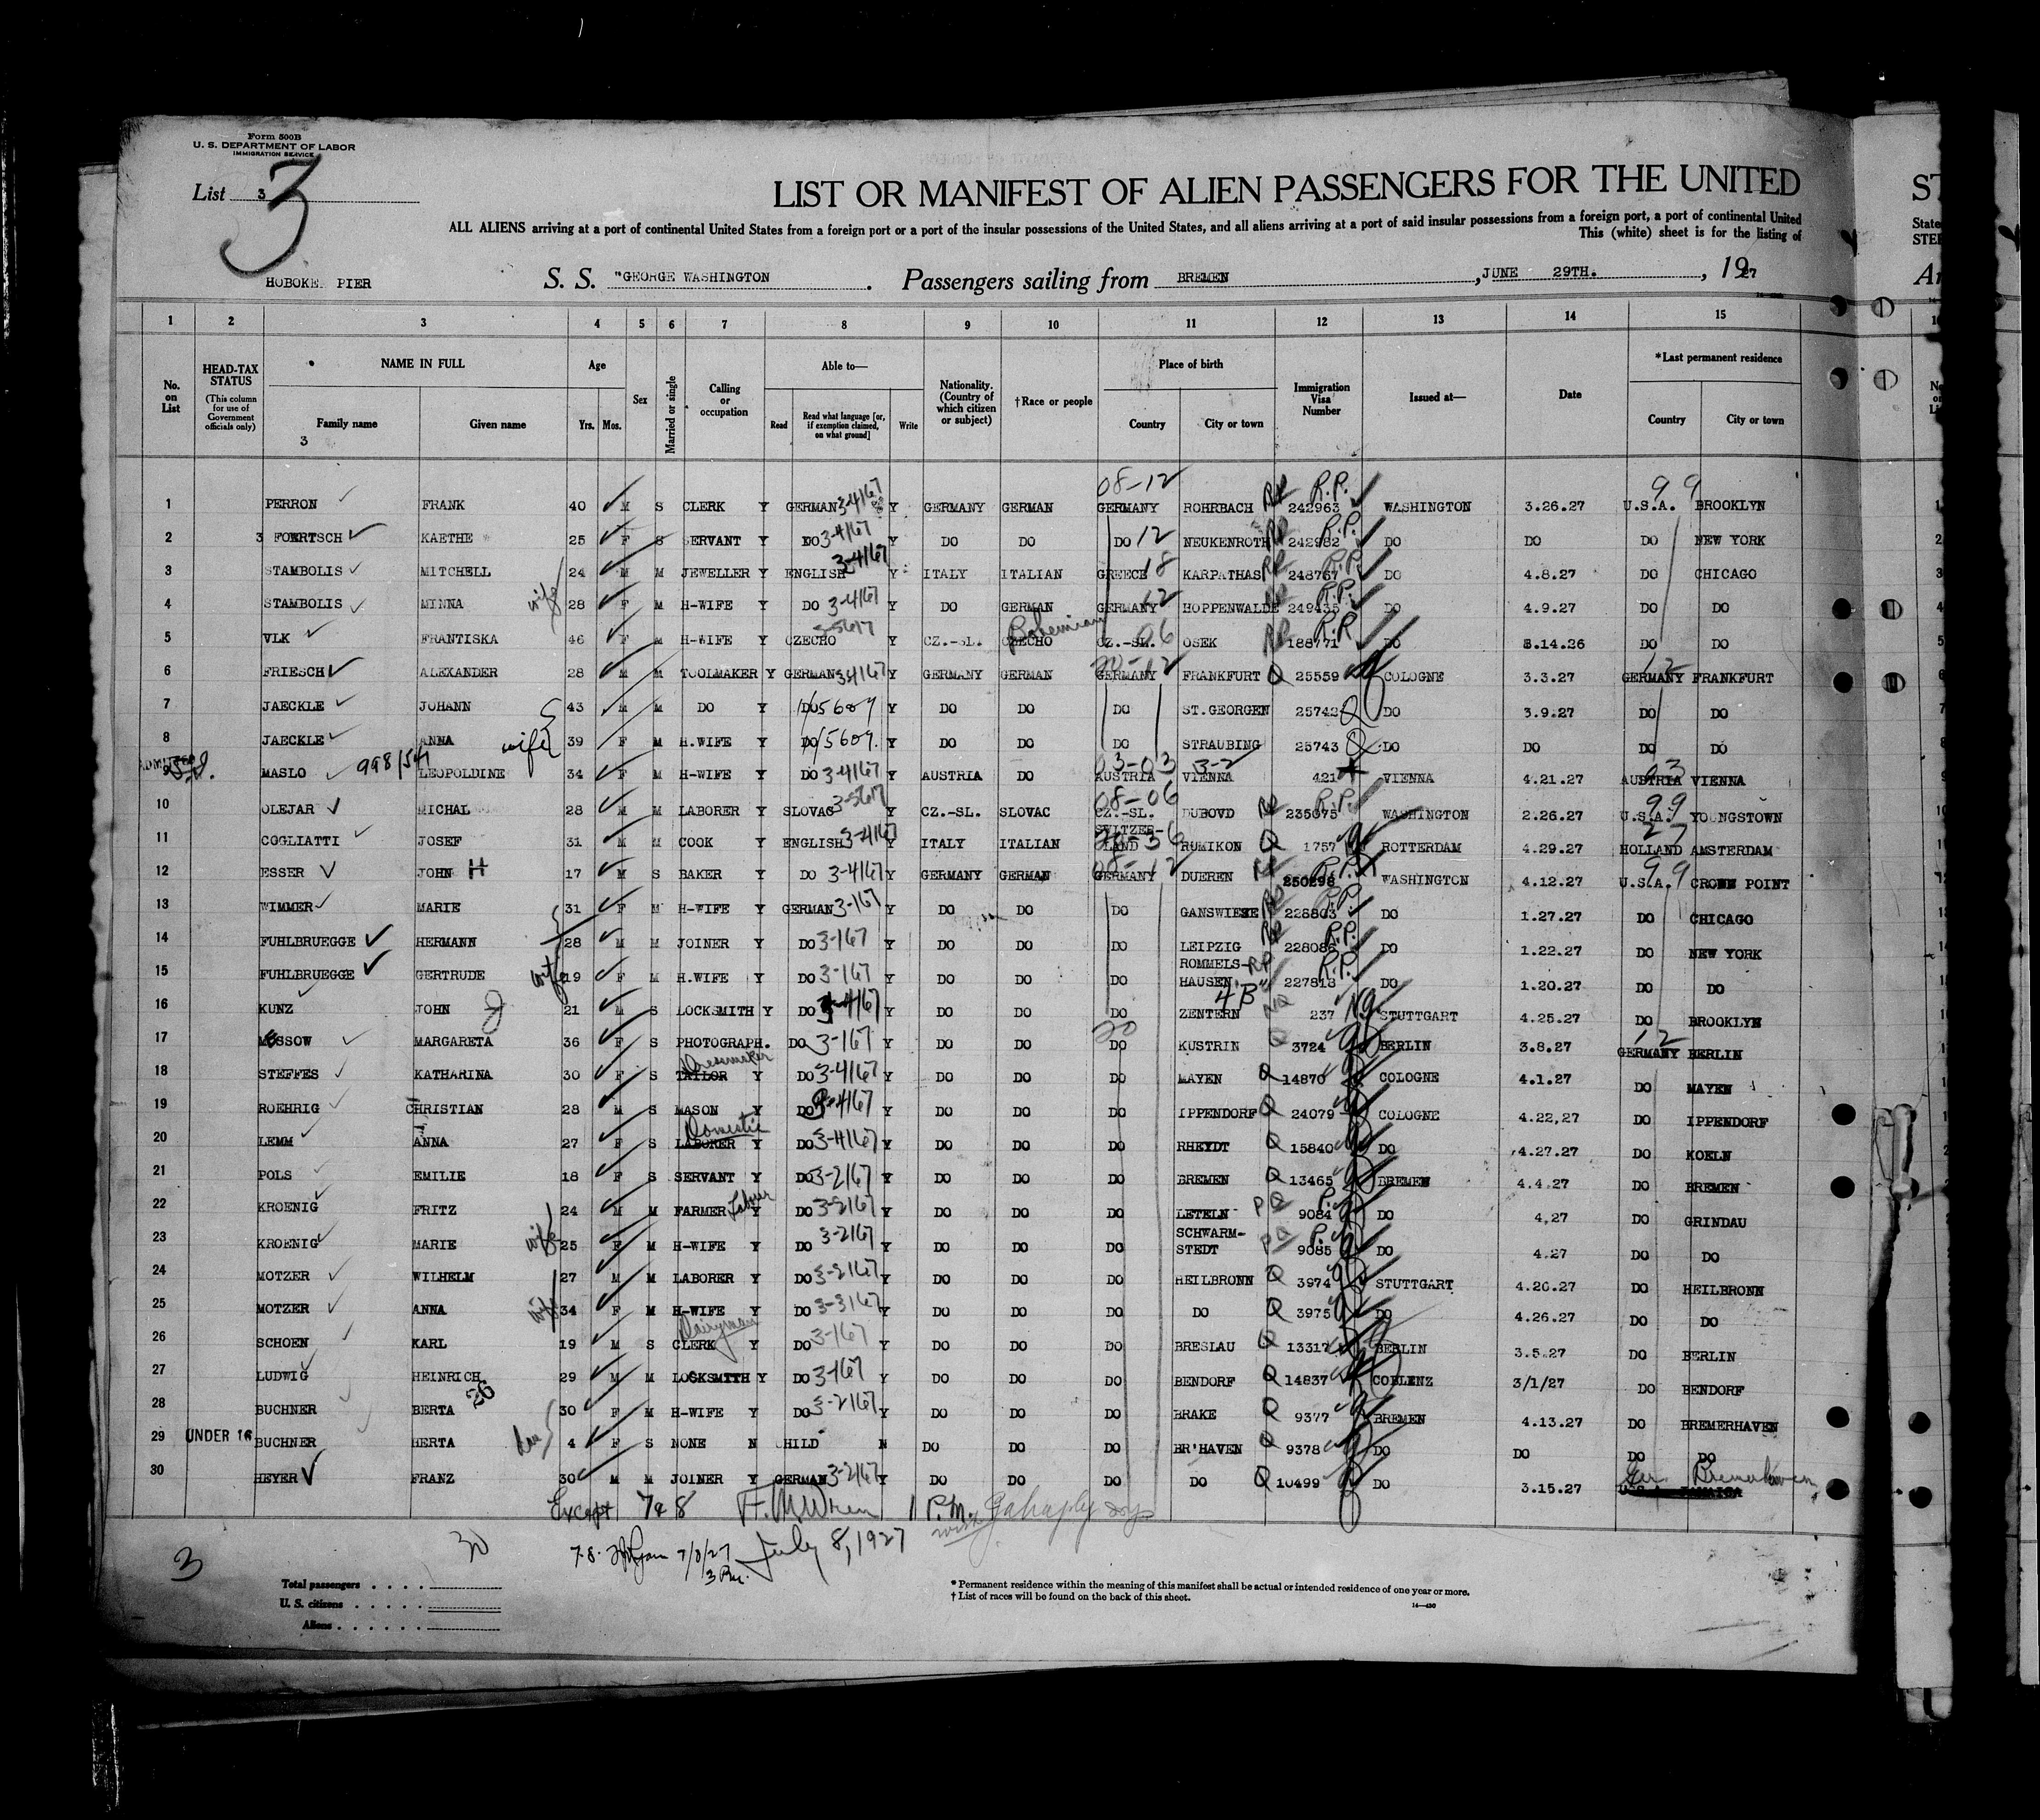 Form 500B
U. S. DEPARTMENT OF LABOR
IMMIGRATION SERVICE
List 3
3
LIST OR MANIFEST OF ALIEN PASSENGERS FOR THE UNITED
ALL ALIENS arriving at a port of continental United States from a foreign port or a port of the insular possessions of the United States, and all aliens arriving at a port of said insular possessions from a foreign port, a port of continental United
This (white) sheet is for the listing of
HOBOKE. PIER S. S. "GEORGE WASHINGTON . Passengers sailing from BREMEN , JUNE 29TH. , 1927
1 2 3 4 5 6 7 8 9 10 11 12 13 14 15
No. on List HEAD-TAX STATUS (This column for use of Government officials only) NAME IN FULL Age Sex Married or single Calling or occupation Able to— Nationality. (Country of which citizen or subject) †Race or people Place of birth Immigration Visa Number Issued at— Date *Last permanent residence
Family name Given name Yrs. Mos. Read Read what language [or, if exemption claimed, on what ground] Write Country City or town Country City or town
3
08-12 R.P. 99
1 PERRON FRANK 40 M S CLERK Y GERMAN 3-4167 Y GERMANY GERMAN GERMANY ROHRBACH RP 242963 WASHINGTON 3.26.27 U.S.A. BROOKLYN
2 3 FOERTSCH KAETHE 25 F S SERVANT Y DO 3-4167 Y DO DO DO 12 NEUKENROTH RP 242982 R.P. DO DO DO NEW YORK
3 STAMBOLIS MITCHELL 24 M M JEWELLER Y ENGLISH 3-4167 Y ITALY ITALIAN GREECE 18 KARPATHAS RP 248767 R.P. DO 4.8.27 DO CHICAGO
4 STAMBOLIS MINNA wife 28 F M H-WIFE Y DO 3-4167 Y DO GERMAN GERMANY 12 HOPPENWALDE 249435 R.P. DO 4.9.27 DO DO
5 VLK FRANTISKA 46 F M H-WIFE Y CZECHO 3-5617 Y CZ.-SL. CZECHO Bohemian CZ.-SL. 06 OSEK RP 188771 R.P. DO 8.14.26 DO DO
6 FRIESCH ALEXANDER 28 M M TOOLMAKER Y GERMAN 3-4167 Y GERMANY GERMAN GERMANY 20-12 FRANKFURT Q 25559 COLOGNE 3.3.27 GERMANY 12 FRANKFURT
7 JAECKLE JOHANN 43 M M DO Y DO 15607 Y DO DO DO ST.GEORGEN 25742 Q DO 3.9.27 DO DO
8 JAECKLE ANNA wife 39 F M H.WIFE Y DO 15607. Y DO DO DO STRAUBING 25743 Q DO DO DO DO
ADMITTED
9 MASLO 998/54 LEOPOLDINE 34 F M H-WIFE Y DO 3-4167 Y AUSTRIA DO AUSTRIA 03-03 VIENNA 3-2 421 VIENNA 4.21.27 AUSTRIA 03 VIENNA
10 OLEJAR MICHAL 28 M M LABORER Y SLOVAC 3-5617 Y CZ.-SL. SLOVAC CZ.-SL. 08-06 DUBOVD RP 235075 R.P. WASHINGTON 2.26.27 U.S.A. 99 YOUNGSTOWN
11 COGLIATTI JOSEF 31 M M COOK Y ENGLISH 3-4167 Y ITALY ITALIAN SWITZER-LAND 20-36 RUMIKON Q 1757 ROTTERDAM 4.29.27 HOLLAND 27 AMSTERDAM
12 ESSER JOHN H 17 M S BAKER Y DO 3-4167 Y GERMANY GERMAN GERMANY 08-12 DUEREN RP 250298 R.P. WASHINGTON 4.12.27 U.S.A. 99 CROWN POINT
13 WIMMER MARIE 31 F M H-WIFE Y GERMAN 3-167 Y DO DO DO GANSWIESE RP 228803 R.P. DO 1.27.27 DO CHICAGO
14 FUHLBRUEGGE HERMANN 28 M M JOINER Y DO 3-167 Y DO DO DO LEIPZIG RP 228086 R.P. DO 1.22.27 DO NEW YORK
15 FUHLBRUEGGE GERTRUDE wife 19 F M H.WIFE Y DO 3-167 Y DO DO DO ROMMELS-HAUSEN RP 227813 R.P. DO 1.20.27 DO DO
16 KUNZ JOHN J 21 M S LOCKSMITH Y DO 3-4167 Y DO DO DO ZENTERN 4B NQ 237 STUTTGART 4.25.27 DO BROOKLYN
17 MESSOW MARGARETA 36 F S PHOTOGRAPH. DO 3-167 Y DO DO DO 20 KUSTRIN Q 3724 BERLIN 3.8.27 GERMANY 12 BERLIN
18 STEFFES KATHARINA 30 F S TAILOR Dressmaker Y DO 3-4167 Y DO DO DO MAYEN Q 14870 COLOGNE 4.1.27 DO MAYEN
19 ROEHRIG CHRISTIAN 28 M S MASON Y DO 3-4167 Y DO DO DO IPPENDORF Q 24079 COLOGNE 4.22,27 DO IPPENDORF
20 LEMM ANNA 27 F S LABORER Domestic Y DO 3-4167 Y DO DO DO RHEYDT Q 15840 DO 4.27.27 DO KOELN
21 POLS EMILIE 18 F S SERVANT Y DO 3-2167 Y DO DO DO BREMEN Q 13465 BREMEN 4.4.27 DO BREMEN
22 KROENIG FRITZ 24 M M FARMER Labour Y DO 3-2167 Y DO DO DO LETELN PQ 9084 P. DO 4,27 DO GRINDAU
23 KROENIG MARIE wife 25 F M H-WIFE Y DO 3-2167 Y DO DO DO SCHWARM-STEDT PQ 9085 P. DO 4.27 DO DO
24 MOTZER WILHELM 27 M M LABORER Y DO 3-2167 Y DO DO DO HEILBRONN Q 3974 STUTTGART 4.26.27 DO HEILBRONN
25 MOTZER ANNA wife 34 F M H-WIFE Y DO 3-3167 Y DO DO DO DO Q 3975 DO 4.26.27 DO DO
26 SCHOEN KARL 19 M S CLERK Dairyman Y DO 3-167 Y DO DO DO BRESLAU Q 13317 BERLIN 3.5.27 DO BERLIN
27 LUDWIG HEINRICH 29 M M LOCKSMITH Y DO 3-167 Y DO DO DO BENDORF Q 14837 COBLENZ 3/1/27 DO BENDORF
28 BUCHNER BERTA 26 30 F M H-WIFE Y DO 3-2167 Y DO DO DO BRAKE Q 9377 BREMEN 4.13.27 DO BREMERHAVEN
29 UNDER 16 BUCHNER HERTA dau 4 F S NONE N CHILD N DO DO DO BR'HAVEN Q 9378 DO DO DO DO
30 HEYER FRANZ 30 M M JOINER Y GERMAN 3-2167 Y DO DO DO DO Q 10499 DO 3.15.27 Ger Bremerhaven
Except 7 & 8 1 P.M.
7-8. 7/8/27 July 8, 1927
3 Pm.
3 30
Total passengers
U. S. citizens
Aliens
* Permanent residence within the meaning of this manifest shall be actual or intended residence of one year or more.
† List of races will be found on the back of this sheet.
14—430